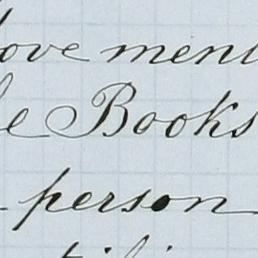 ove ment
e Books
person